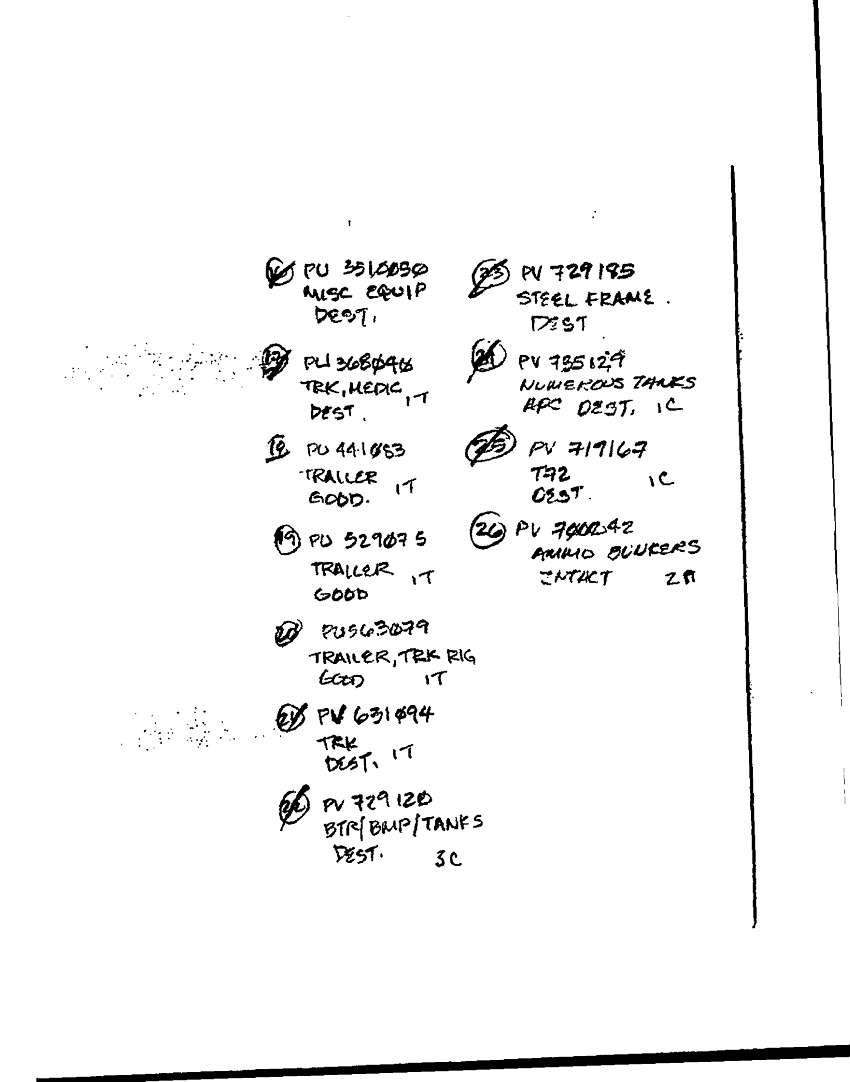 16 PU 351Ø050
MISC EQUIP
DEST.
17 PU 368Ø40
TRK, MEDIC 1T
DEST.
18 PU 441Ø83
TRAILER 1T
GOOD.
19 PU 529Ø75
TRAILER 1T
GOOD
20 PU563Ø79
TRAILER, TRK RIG
GOOD 1T
21 PV 631Ø94
TRK
DEST. 1T
22 PV 72912Ø
BTR/BMP/TANKS
DEST. 3C
23 PV 729185
STEEL FRAME.
DEST
24 PV 735129
NUMEROUS TANKS
APC DEST, 1C
25 PV 719167
T72 1C
DEST.
26 PV 700242
AMMO BUNKERS
INTACT